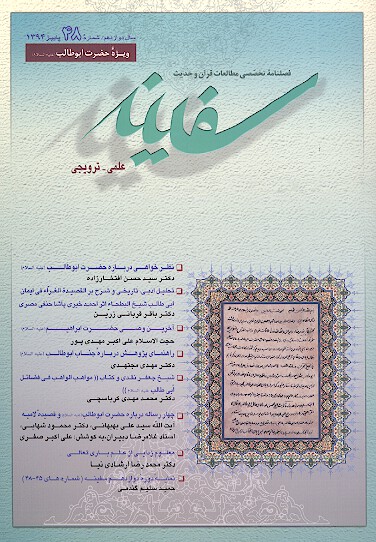 سال دوازدهم / شماره ۴۸ / پاییز ۱۳۹۴
ویژهٔ حضرت ابوطالب (علیه السلام)
فصلنامهٔ تخصصی مطالعات قرآن و حدیث
سفینه
علمی - ترویجی
نظرخواهی درباره حضرت ابوطالب (علیه السلام)
دکتر سید حسن افتخارزاده
تحلیل ادبی، تاریخی و شرح بر القصیدة الغرّاء فی ایمان
ابی طالب شیخ البطحاء اثر احمد خیری پاشا حنفی مصری
دکتر باقر قربانی زرین
آخرین وصی حضرت ابراهیم (علیه السلام)
حجت الاسلام علی اکبر مهدی پور
راهنمای پژوهش درباره جناب ابوطالب (علیه السلام)
دکتر مهدی مجتهدی
شیخ جعفر نقدی و کتاب (( مواهب الواهب فی فضائل
ابی طالب (علیه السلام) ))
دکتر محمد مهدی کرباسچی
چهار رساله درباره حضرت ابوطالب (علیه السلام) و قصیدهٔ لامیه
آیت الله سید علی بهبهانی، دکتر محمود شهابی،
استاد غلامرضا دبیران، به کوشش علی اکبر صفری
معلوم زدایی از علم باری تعالی
دکتر محمد رضا ارشادی نیا
نمایه دوره دوازدهم سفینه ( شماره های ۴۵-۴۸ )
حمید سلیم گندمی